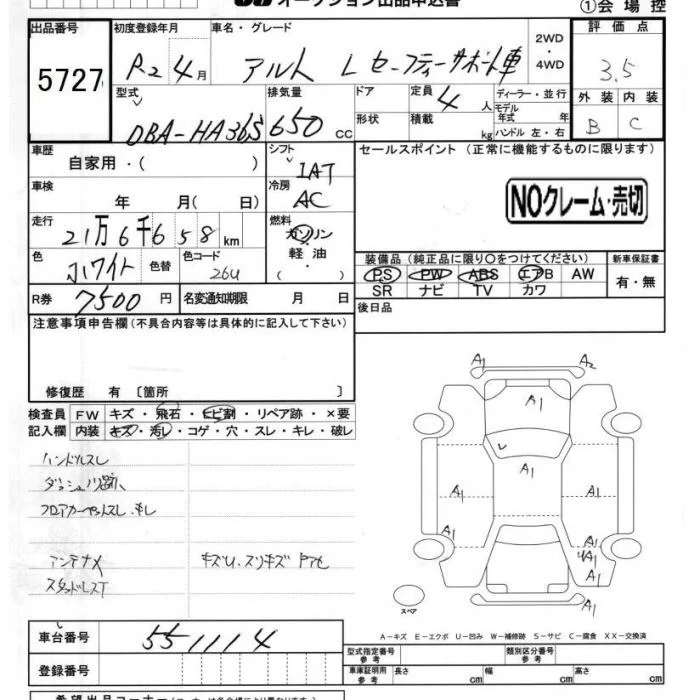 オークション出品申込書
①会場控
出品番号 初度登録年月 車名・グレード 2WD・4WD 評価点
5727 R2 4月 アルト L セーフティーサポート車 3.5
型式 排気量 ドア 定員 4人 ディーラー・並行 外装 内装
DBA-HA36S 650cc 形状 積載 kg モデル年式 年 ハンドル 左・右 B C
車歴 自家用・( ) シフト IAT セールスポイント(正常に機能するものに限ります)
車検 年 月( 日) 冷房 AC NOクレーム・売切
走行 21万6千658km 燃料 ガソリン
色 ホワイト 色替 色コード 26U 軽油・( ) 装備品(純正品に限り○をつけてください) 新車保証書
PS PW ABS エアB AW 有・無
R券 7500円 名変通知期限 月 日 SR ナビ TV カワ
注意事項申告欄(不具合内容等は具体的に記入して下さい) 後日品
修復歴 有 〔箇所 〕
検査員 FW キズ・飛石・ヒビ割・リペア跡・×要
記入欄 内装 キズ・汚レ・コゲ・穴・スレ・キレ・破レ
ハンドルスレ
ダッシュノリ跡
フロアカーペットスレ・キレ
アンテナX キズU、スリキズ
スタッドレスT
A1 A2
A1
A1
A1 A1
A1 A1
A1
A1
スペア
A-キズ E-エクボ U-凹み W-補修跡 S-サビ C-腐食 XX-交換済
車台番号 551114 型式指定番号 参考 類別区分番号 参考
登録番号 車庫証明用 参考 長さ cm 幅 cm 高さ cm